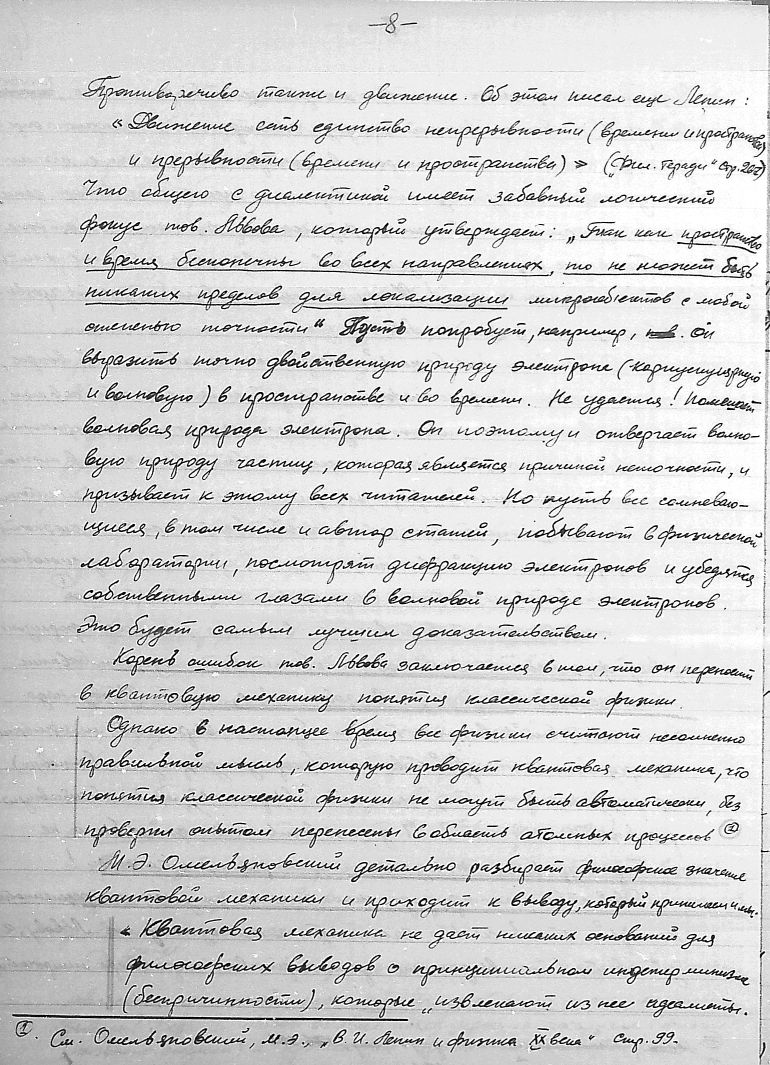 —8—
Противоречиво также и движение. Об этом писал еще Ленин:
«Движение есть единство непрерывности (времени и пространства)
и прерывности (времени и пространства)» („Фил. тетради" стр. 262)
Что общего с диалектикой имеет забавный логический
фокус тов. Львова, который утверждает: „Так как пространство
и время бесконечны во всех направлениях, то не может быть
никаких пределов для локализации микрообъектов с любой
степенью точности" Пусть попробует, например, он
выразить точно двойственную природу электрона (корпускулярную
и волновую) в пространстве и во времени. Не удается! Помешает
волновая природа электрона. Он поэтому и отвергает волно-
вую природу частиц, которая является причиной неточности, и
призывает к этому всех читателей. Но пусть все сомневаю-
щиеся, в том числе и автор статей, побывают в физической
лаборатории, посмотрят дифракцию электронов и убедятся
собственными глазами в волновой природе электронов.
Это будет самым лучшим доказательством.
Корень ошибок тов. Львова заключается в том, что он переносит
в квантовую механику понятия классической физики.
Однако в настоящее время все физики считают несомненно
правильной мысль, которую проводит квантовая механика, что
понятия классической физики не могут быть автоматически, без
проверки опытом перенесены в область атомных процессов
М.Э. Омельяновский детально разбирает философское значение
квантовой механики и приходит к выводу, который принимаем и мы.
« Квантовая механика не дает никаких оснований для
философских выводов о принципиальном индетерминизме
(беспричинности), которые „извлекают из нее идеалисты.
① См. Омельяновский, М.Э., „В. И. Ленин и физика XX века" стр. 99.